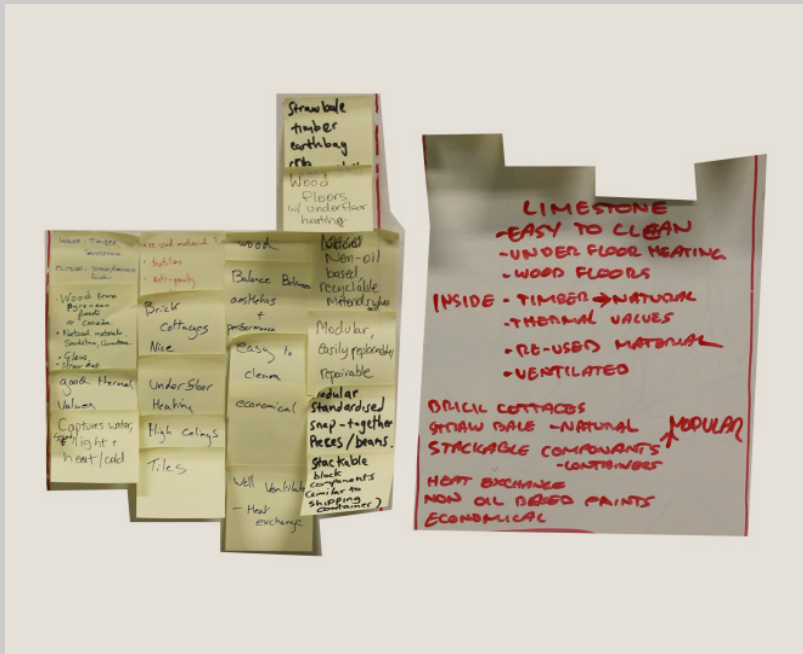 Strawbale
timber
earthbag
Wood
Floors
w/ underfloor
heating
INSIDE: TIMBER
• Wood from
Pyrenean
forests
or Canada.
• Natural materials,
Sandstone, Limestone.
• Glass.
• Straw bale
good thermal
values
Captures water,
light +
heat/cold
re used material ?
• textiles
Brick
Cottages
Nice
Underfloor
Heating
High Celings
Tiles
wood
Balance Between
aesthetics
+
performance
easy to
clean
economical
Well Ventilated
- Heat
exchange
Natural
Non-oil
based,
recyclable
Materials
Modular,
easily replaceable,
repairable
modular
standardised
snap-together
pieces/beams.
stackable
block
components
(similar to
shipping
container)
LIMESTONE
-EASY TO CLEAN
-UNDER FLOOR HEATING
-WOOD FLOORS
INSIDE - TIMBER → NATURAL
-THERMAL VALUES
-RE-USED MATERIAL
-VENTILATED
BRICK COTTAGES
STRAW BALE -NATURAL
STACKABLE COMPONANTS MODULAR
-CONTAINERS
HEAT EXCHANGE
NON OIL BASED PAINTS
ECONOMICAL